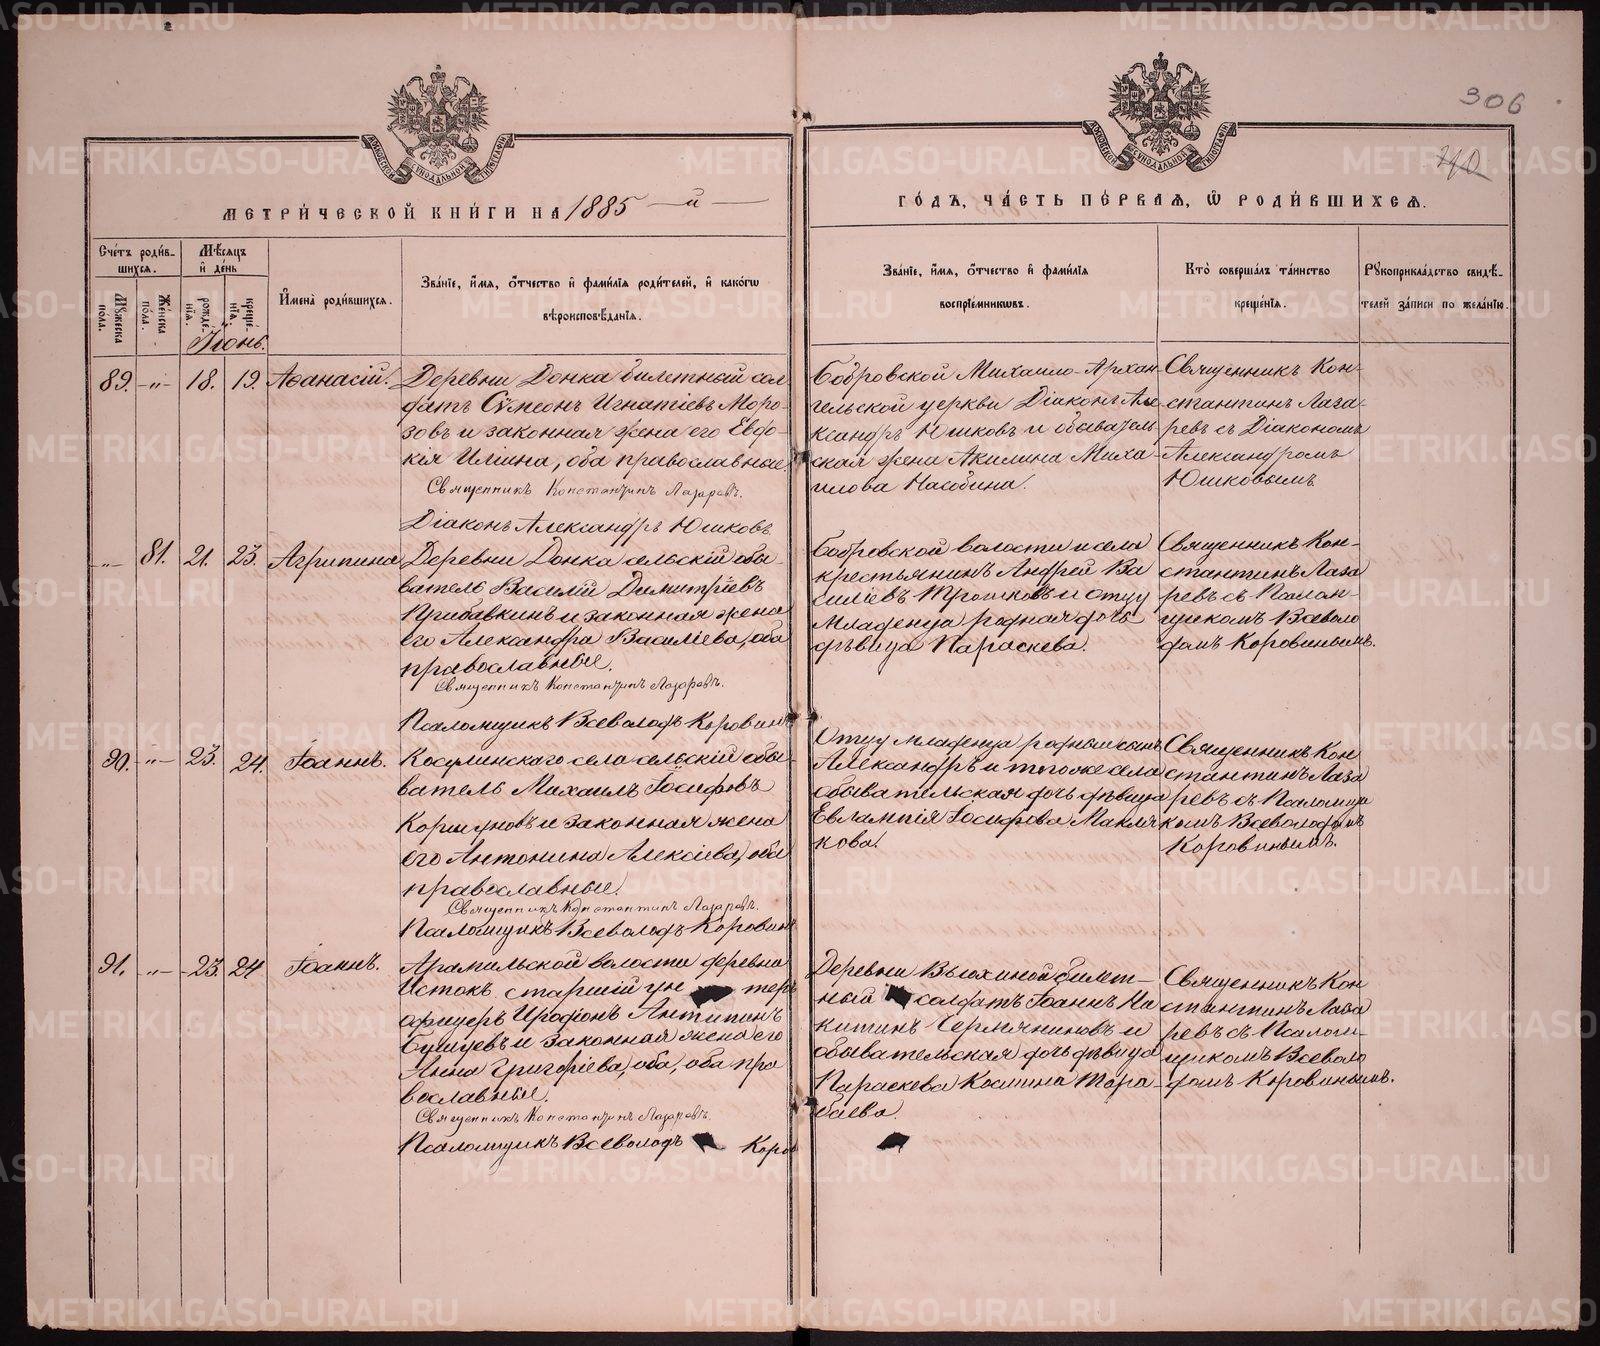 306
740
МЕТРИ́ЧЕСКОЙ КНИ́ГИ НА 1885 —й—
ГО́ДЪ, ЧА́СТЬ ПЕ́РВАЯ, Ѽ РОДИ́ВШИХСЯ.
Сче́тъ роди́в-
шихся.
Мѣ́сяцъ
и҆ де́нь
Мꙋжеска
пола.
Же́нска
пола.
рожде-
нїѧ.
креще́-
нїѧ.
И҆мена̀ роди́вшихся.
Зва́нїе, и҆́мя, ѻ҆́тчество и҆ фами́лїя роди́телей, и҆ како́гѡ
вѣ́роисповѣ́данїѧ.
Зва́нїе, и҆́мя, ѻ҆́тчество и҆ фами́лїя
воспрїе́мникѡвъ.
Кто̀ соверша́лъ та́инство
креще́нїѧ.
Рꙋкоприкла́дство свидѣ́-
телей за́писи по жела́нїю.
Іюнь.
89. -"- 18. 19. Аѳанасій.
Деревни Донка билетный сол
датъ Сѵмеонъ Игнатіевъ Моро-
зовъ и законная жена его Евдо-
кія Илиина, оба православные.
Священникъ Константинъ Лазаревъ.
Діаконъ Александръ Юшковъ
Бобровской Михаило-Архан
гельской церкви Діаконъ Але
ксандръ Юшковъ и обыватель
ская жена Акилина Миха-
илова
Священникъ Кон-
стантинъ Лаза-
ревъ съ Діакономъ
Александромъ
Юшковымъ
-"- 81. 21. 23. Агрипина
Деревни Донка сельскій обы-
ватель Василій Димитріевъ
Прибавкинъ и законная жена
его Александра Василіева, оба
православные.
Священникъ Константинъ Лазаревъ.
Псаломщикъ Всеволодъ Коровинъ
Бобровской волости и села
крестьянинъ Андрей Ва
силіевъ Трошковъ и отцу
младенца родная дочь
дѣвица Параскева.
Священникъ Кон-
стантинъ Лаза
ревъ съ Псалом-
щикомъ Всеволо
домъ Коровинымъ.
90. -"- 23. 24. Іоаннъ.
Косулинскаго села сельскій обы-
ватель Михаилъ Іосифовъ
Коршуновъ и законная жена
его Антонина Алексіева, оба
православные.
Священникъ Константинъ Лазаревъ.
Псаломщикъ Всеволодъ Коровинъ
Отцу младенца родный сынъ
Александръ и того же села
обывательская дочь дѣвица
Евлампія Іосифова Макля
кова.
Священникъ Кон
стантинъ Лаза
ревъ съ Псаломщи
комъ Всеволодомъ
Коровинымъ.
91. -"- 23. 24 Іоаннъ.
Арамильской волости деревни
Истокъ старшій ун теръ
офицеръ Иродіонъ Антипинъ
и законная жена его
Анна Григоріева, оба, оба пра
вославные.
Священникъ Константинъ Лазаревъ.
Псаломщикъ Всеволодъ Коров
Деревни Вьюхиной билет-
ный солдатъ Іоаннъ Ни
китинъ Чермяниновъ и
обывательская дочь дѣвица
Параскева Космина Тара-
баева
Священникъ Кон
стантинъ Лаза
ревъ съ Псалом-
щикомъ Всеволо
домъ Коровинымъ.
METRIKI.GASO-URAL.RU